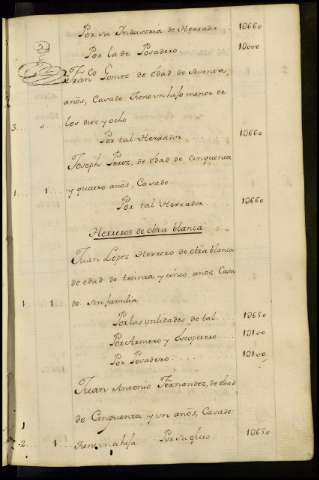 Por su Industria de Herrador 1066o
Por la de Posadero 1000o
Juan Gomez de edad de
años, Casado tiene un hijo menor de
3 los diez y ocho
Por tal Herrador 1066o
Joseph Perez, de edad de cinquenta
1 1 y quatro años, Casado
Por tal Herrador 1066o
Herreros de obra blanca
Juan Lopez Herrero de obra blanca
de edad de treinta y cinco años, Casado
1 1 sin familia
Por las utilidades de tal 1065o
Por Armero y Escopetero
Por Posadero
Juan Antonio Fernandez, de edad
1 de Cinquenta y un años, Casado
2 1 tiene un hijo Por su oficio 1065o